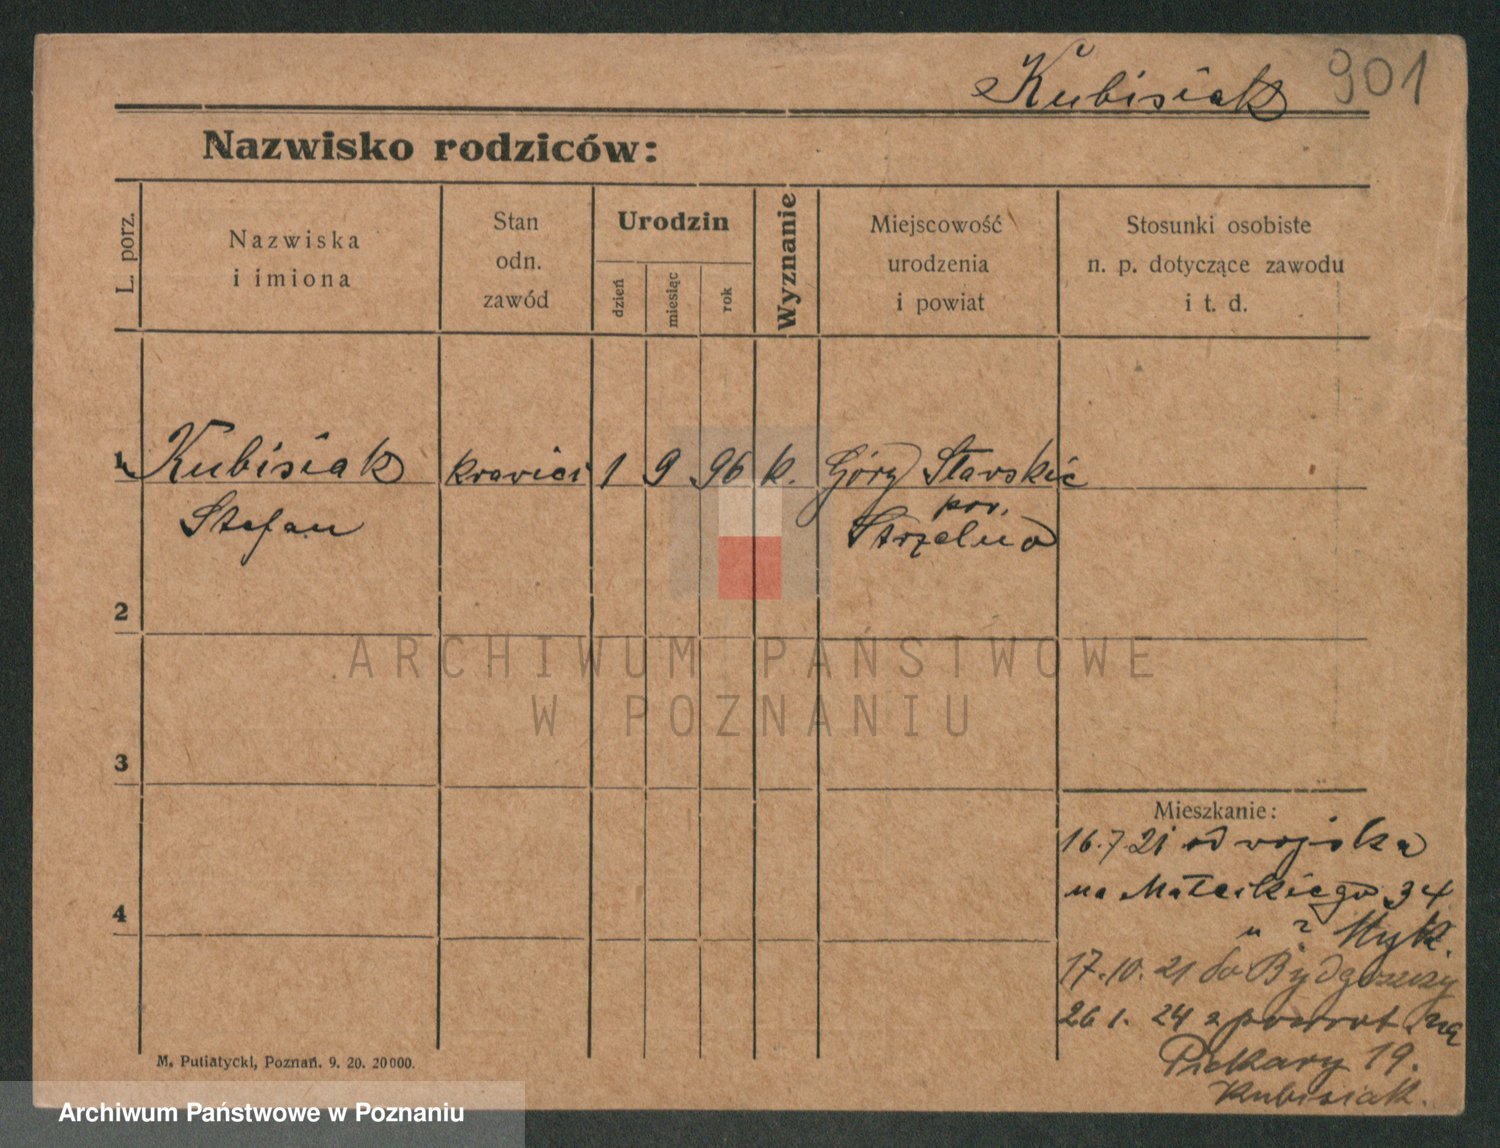 Kubisiak 901
Nazwisko rodziców:
L. porz.
Nazwiska
i imiona
Stan
odn.
zawód
Urodzin
dzień
miesiąc
rok
Wyznanie
Miejscowość
urodzenia
i powiat
Stosunki osobiste
n. p. dotyczące zawodu
i t. d.
1 Kubisiak krawiec 1 9 96 k. Góry Starskie
Stefan
pow.
Strzelno
2
ARCHIWUM PAŃSTWOWE
W POZNANIU
3
Mieszkanie:
16.7.21 od wojska
na Małeckiego 34
" z
4
17.10.21 do Bydgoszczy
26.1.24 z powrot na
Piekary 19.
Kubisiak.
M. Putiatycki, Poznań. 9. 20. 20000.
Archiwum Państwowe w Poznaniu